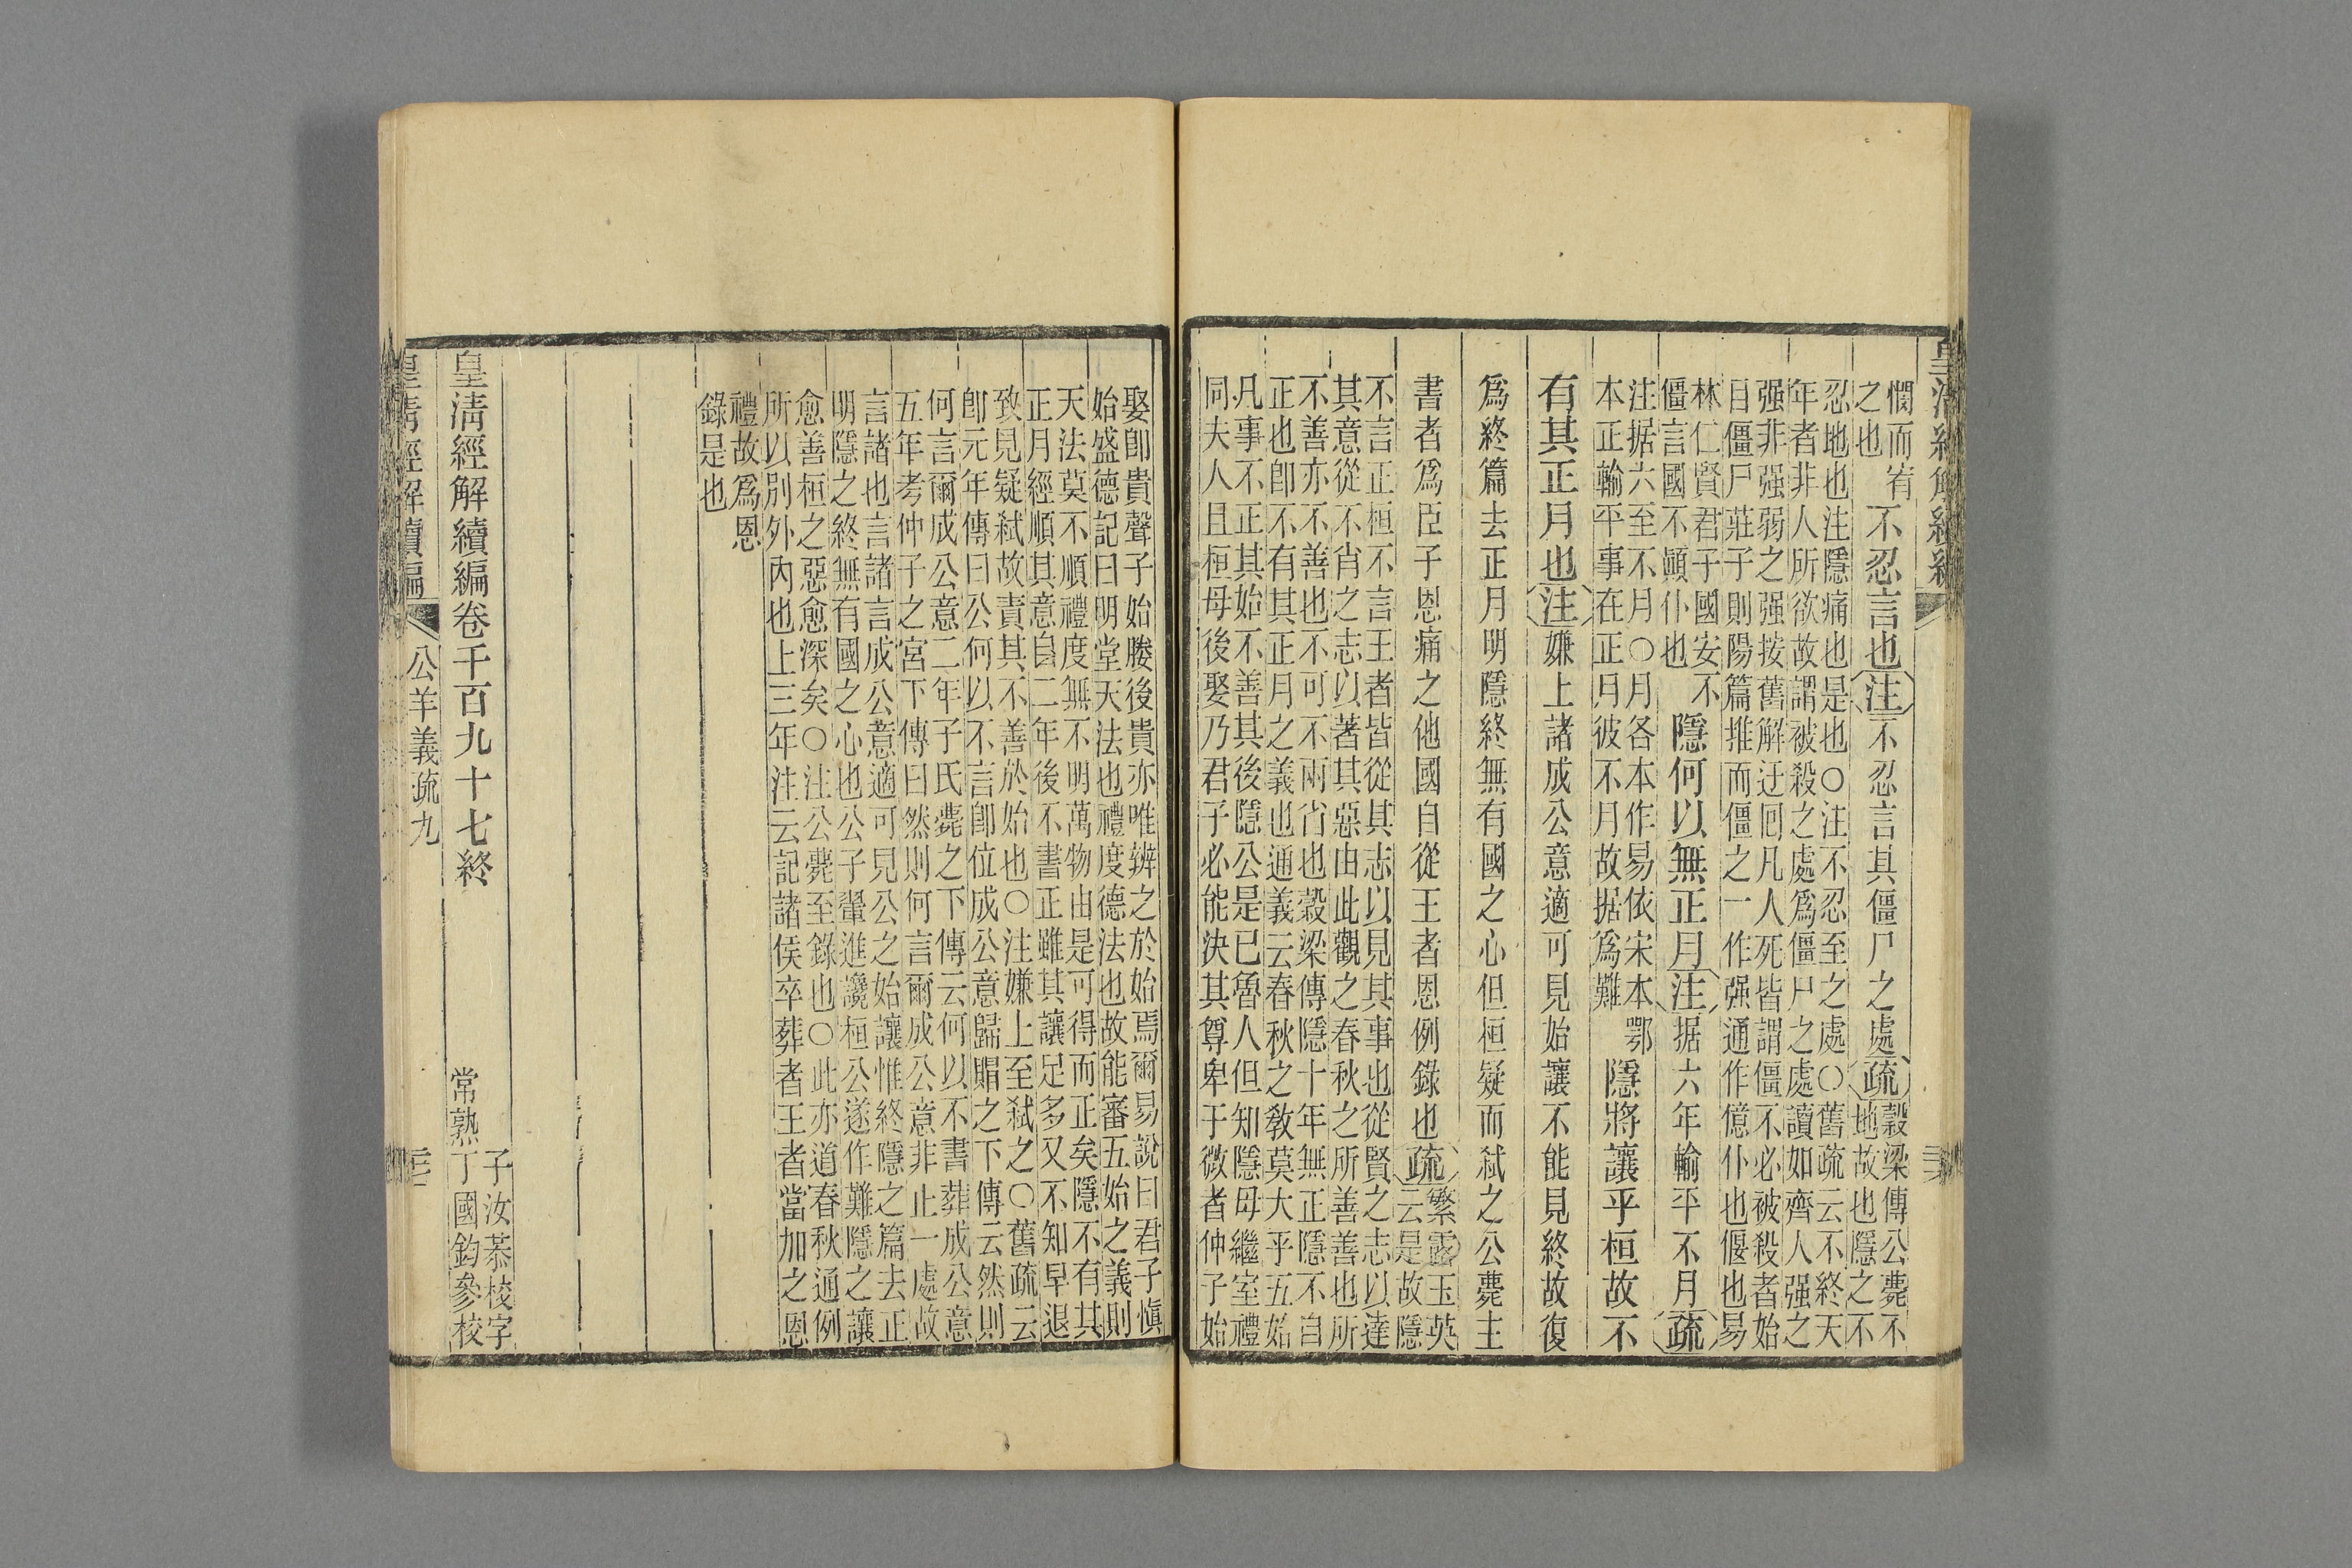 皇清經解續編
憫而宥
之也
不忍言也注不忍言其僵尸之處疏
穀梁傳公薨不
地故也隱之不
忍地也注隱痛也是也〇注不忍至之處〇舊疏云不終天
年者非人所欲故謂被殺之處爲僵尸之處讀如齊人强之
强非强弱之强按舊解迂囘凡人死皆謂僵不必被殺者始
曰僵尸莊子則陽篇推而僵之一作强通作僵仆也偃也易
林仁賢君子國安不
僵言國不顚仆也
隱何以無正月注据六年輸平不月疏
注据六至不月〇月各本作易依宋本鄂
本正輸平事在正月彼不月故据爲難
隱將讓乎桓故不
有其正月也注嫌上諸成公意適可見始讓不能見終故復
爲終篇去正月明隱終無有國之心但桓疑而弒之公薨主
書者爲臣子恩痛之他國自從王者恩例錄也疏
繁露玉英
云是故隱
不言正桓不言王者皆從其志以見其事也從賢之志以達
其意從不肖之志以著其惡由此觀之春秋之所善善也所
不善亦不善也不可不兩省也穀梁傳隱十年無正隱不自
正也卽不有其正月之義也通義云春秋之敎莫大乎五始
凡事不正其始不善其後隱公是已魯人但知隱母繼室禮
同夫人且桓母後娶乃君子必能決其尊卑于微者仲子始
娶卽貴聲子始媵後貴亦唯辨之於始焉爾易說曰君子愼
始盛德記曰明堂天法也禮度德法也故能審五始之義則
天法莫不順禮度無不明萬物由是可得而正矣隱不有其
正月經順其意自二年後不書正雖其讓足多又不知早退
致見疑弒故責其不善於始也〇注嫌上至弒之〇舊疏云
卽元年傳曰公何以不言卽位成公意歸賵之下傳云然則
何言爾成公意二年子氏薨之下傳云何以不書葬成公意
五年考仲子之宮下傳曰然則何言爾成公意非止一處故
言諸也言諸言成公意適可見公之始讓惟終隱之篇去正
明隱之終無有國之心也公子翬進讒桓公遂作難隱之讓
愈善桓之惡愈深矣〇注公薨至錄也〇此亦道春秋通例
所以別外內也上三年注云記諸侯卒葬者王者當加之恩
禮故爲恩
錄是也
皇清經解續編卷千百九十七終
子汝恭校字
常熟丁國鈞參校
皇淸經解續編
公羊義疏九